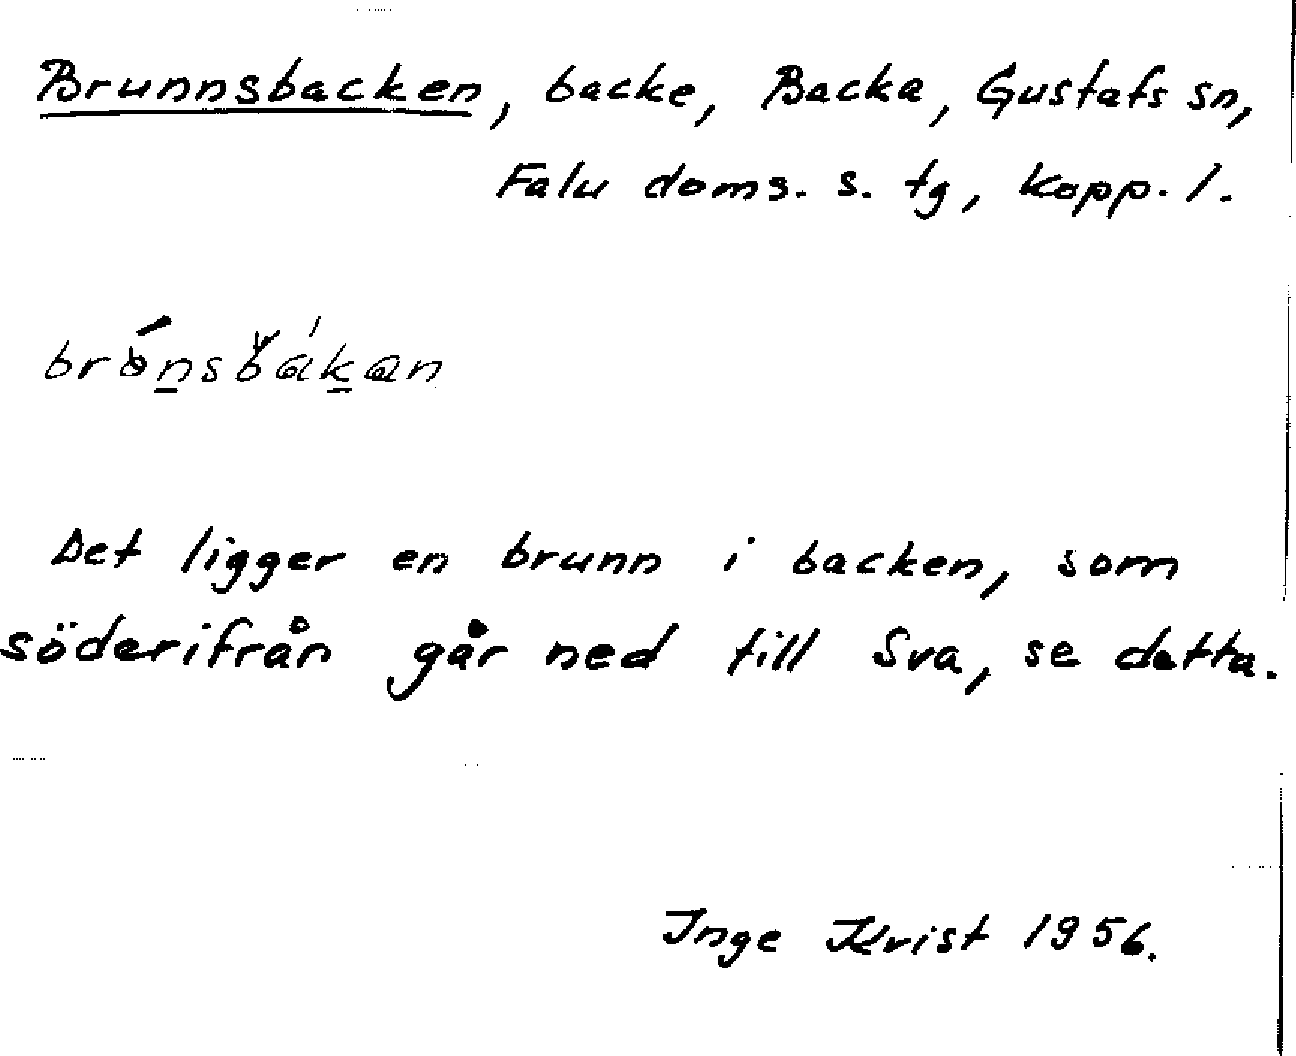 Brunnsbacken, backe, Backa, Gustafs sn,
Falu doms. s. tg, Kopp. l.
Det ligger en brunn i backen, som
söderifrån går ned till Sva, se detta.
Inge Krist 1956.